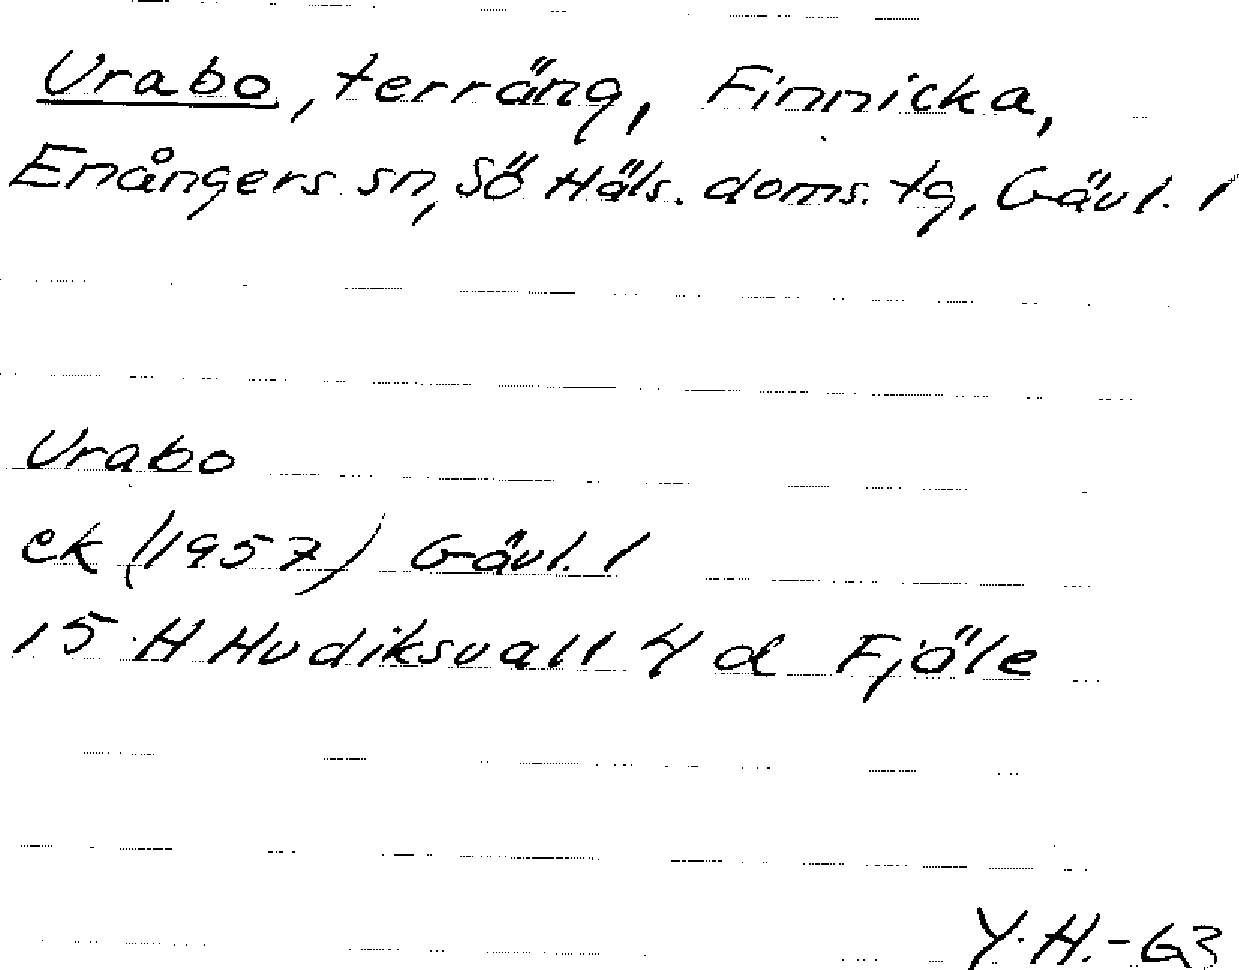 Urabo, terräng, Finnicka,
Enångers sn, Sö Häls. doms. tg, Gävl. l
Urabo
ek (1957) Gävl. l
15 H Hudiksvall 4 d Fjäle
Y.H.-63